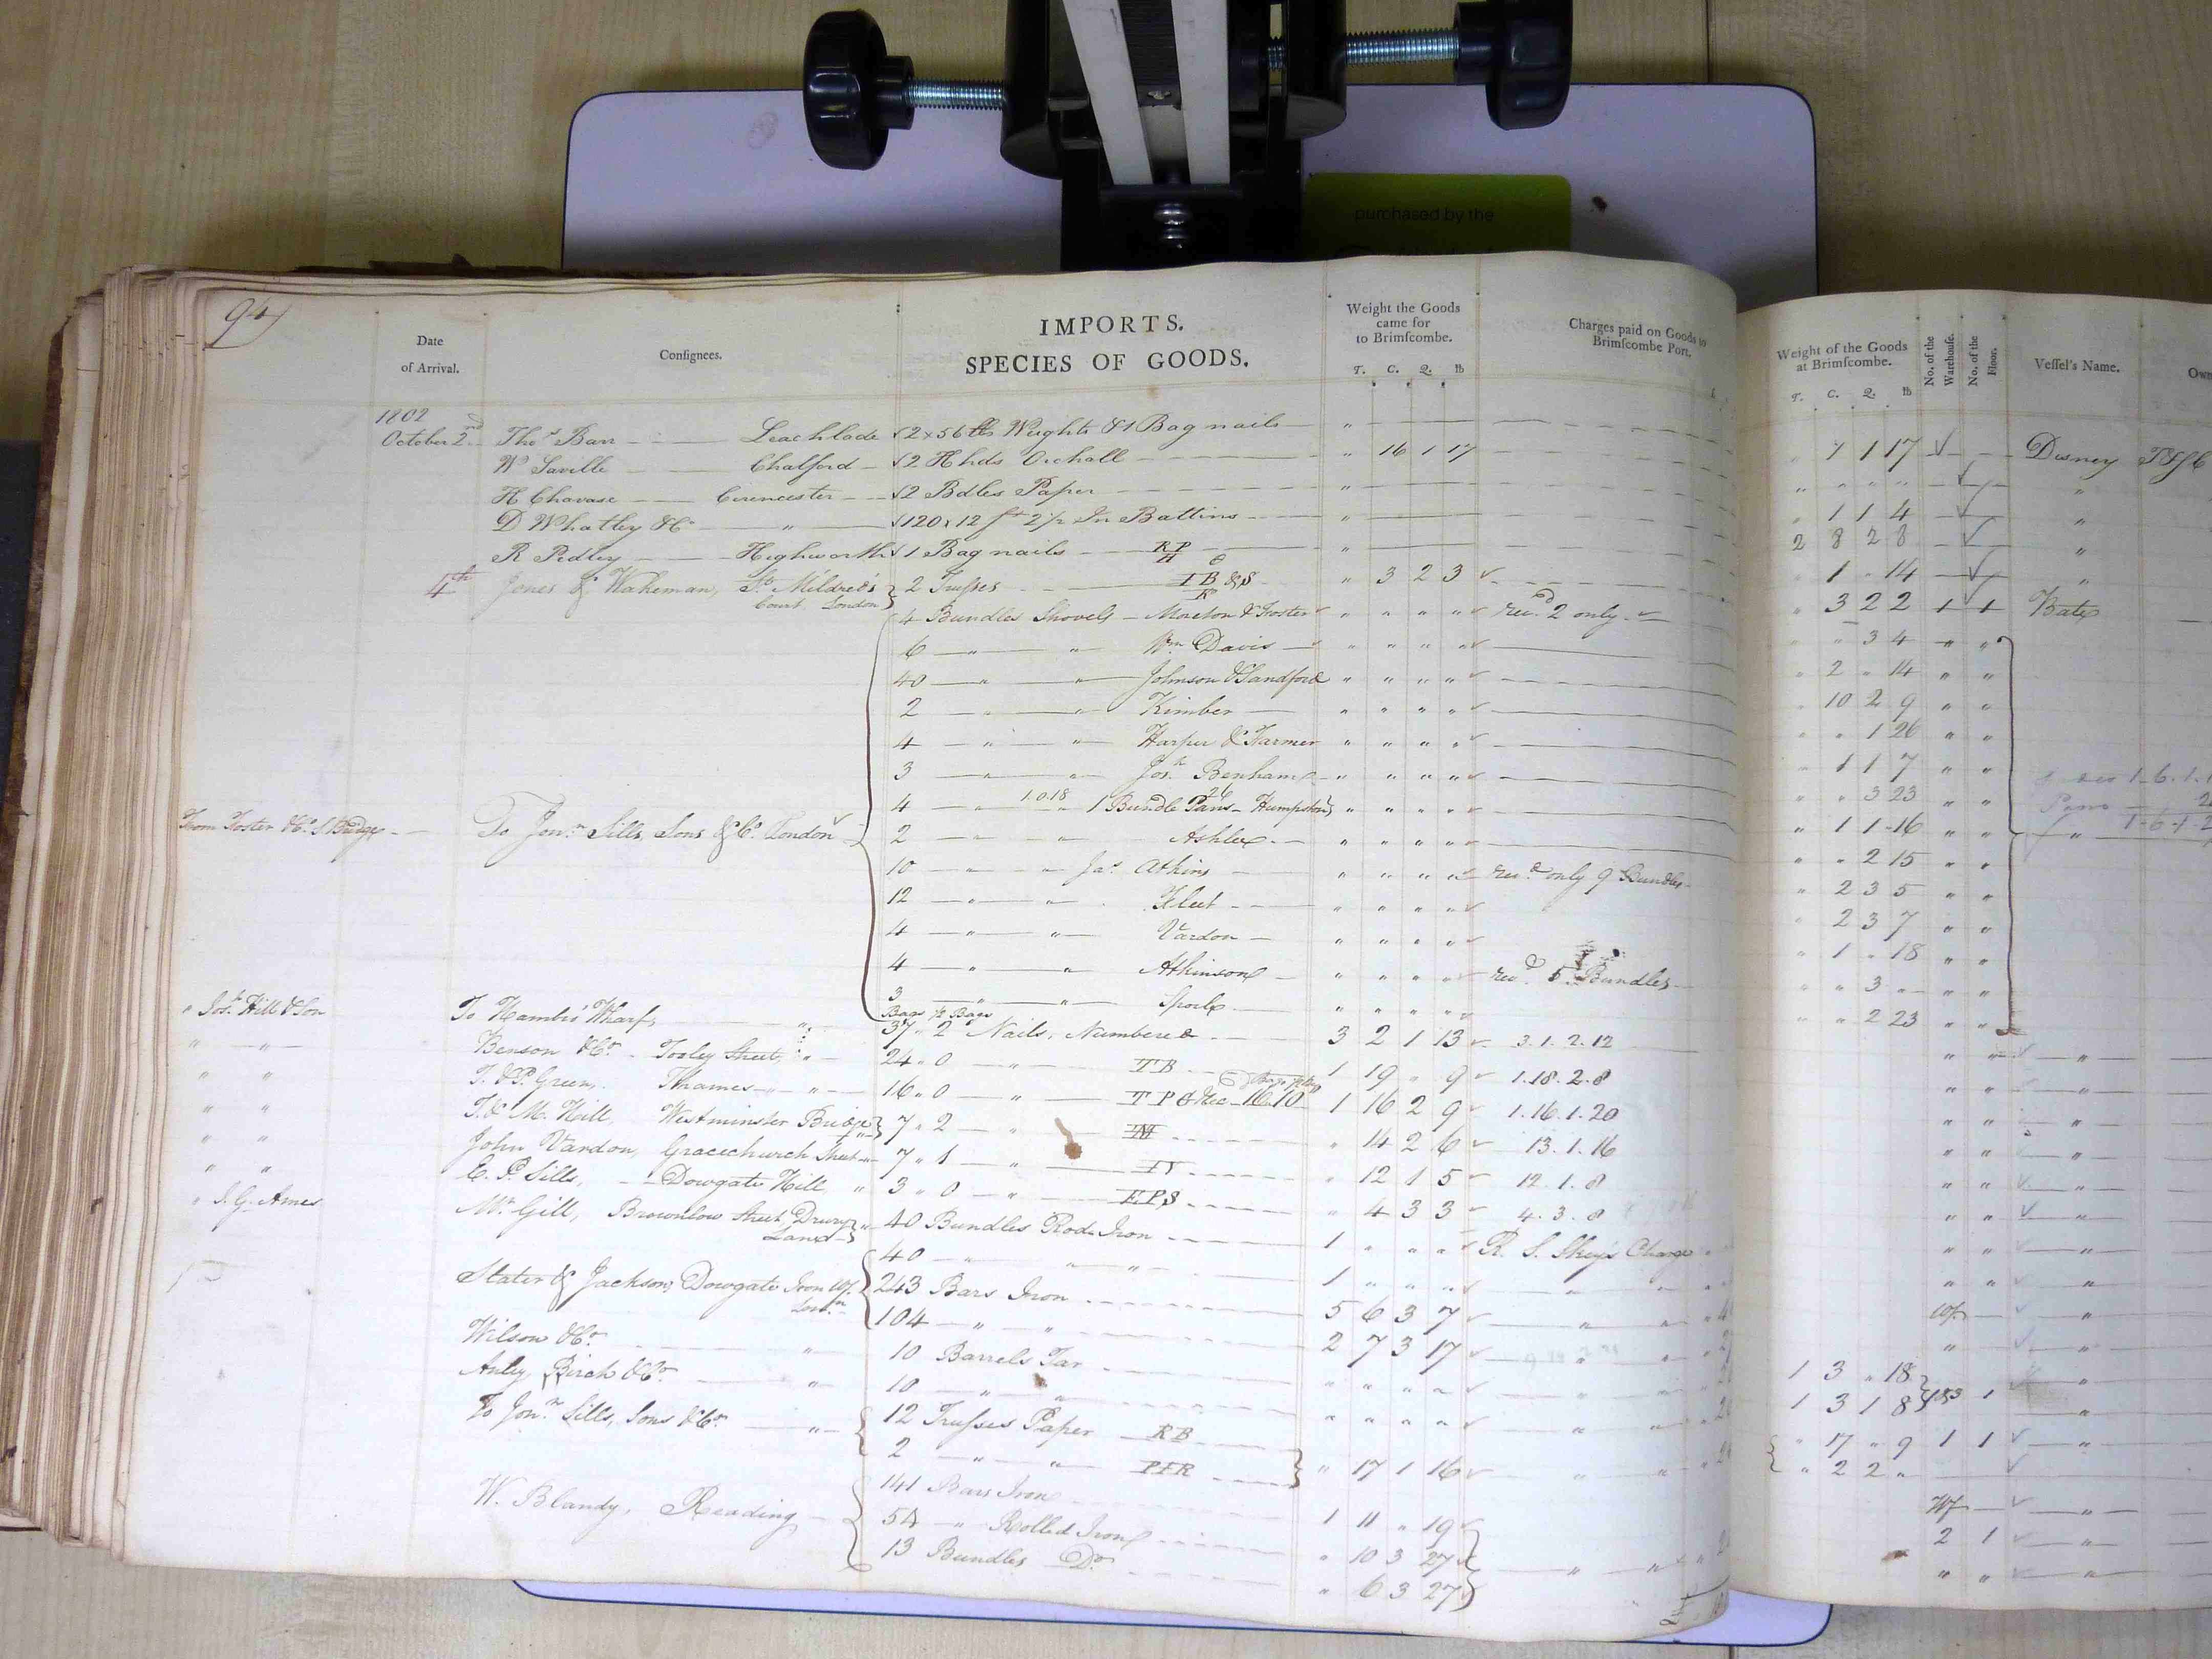 purchased by the
94
Date
of Arrival.
Consignees.
IMPORTS.
SPECIES OF GOODS.
Weight the Goods
came for
to Brimscombe.
T. C. Q. lb
Charges paid on Goods to
Brimscombe Port.
Weight of the Goods
at Brimscombe.
T. C. Q. lb
No. of the
Warehouse.
No. of the
Floor.
Vessel's Name.
Own
1802
October 2nd Thos Barr Leachlade 2 x 56 lb Weights & 1 Bag nails " 7 1 17 Disney
Wm Saville Chalford 2 Hhds Orchall " 16 1 17 " " " " "
H Chavase Cirencester 2 Bdles Paper " " 1 1 4 "
D Whatley & Co " 120 x 12 ft 2 1/2 In Battins " 2 8 2 8 "
R Pedley Highworth 1 Bag nails RP H " " 1 " 14 "
4th Jones & Wakeman, St Mildred's Court London 2 Trusses IB&S " 3 2 3 " 3 2 2 1 1 Bate
4 Bundles Shovels Moreton & Foster " " " " recd 2 only " " 3 4 " "
6 " " Wm Davis " " " " " 2 " 14 " "
40 " " Johnson & Sandford " " " " " 10 2 9 " "
2 " " Kimber " " " " " " 1 26 " "
4 " " Harper & Farmer " " " " " 1 1 7 " "
3 " " Josh Benham " " " " " " 3 23 " "
4 " 1.0.18 " 1 Bundle Pans 26 Humpston " " " " " 1 1 16 " "
From Foster & Co S. Bridge To Jonn Sills, Sons & Co London
2 " " Ashlee " " " " " " 2 15 " "
10 " " Jas Atkins " " " " recd only 9 Bundles " 2 3 5 " "
12 " " Fleet " " " " " 2 3 7 " "
4 " " Vardon " " " " " 1 " 18 " "
4 " " Atkinson " " " " recd 5 Bundles " " 3 " " "
3 " " " " " " " " 2 23 " "
Bags 1/2 Bags
" Josh Hill & Son To Hambro' Wharf, " 37 " 2 Nails, Numbered 3 2 1 13 3.1.2.12 " " "
" " Benson & Co Tooley Street, " 24 " 0 " TB 1 19 " 9 1.18.2.8 " " "
" " T. & P. Green, Thames " " 16 " 0 " 1 16 2 9 1.16.1.20 " " "
" " T. & M. Hill, Westminster Bridge 7 " 2 " " 14 2 6 13.1.16 " " "
" " John Vardon, Gracechurch Street " 7 " 1 " " 12 1 5 12.1.8 " " "
" " E. P. Sills, Dowgate Hill " 3 " 0 " EPS " 4 3 3 4.3.8 " " "
" S. G. Ames Mr Gill, Brownlow Street, Drury Lane " 40 Bundles Rod Iron 1 " " " R. S. Skey's Charge " " "
40 " " " 1 " " " " " " " "
Slater & Jackson, Dowgate Iron Wf. London 243 Bars Iron 5 6 3 7 " " Wf. "
104 " " 2 7 3 17 " " " "
Wilson & Co " 10 Barrels Tar " " " " " " 1 3 " 18 "
Anley, Birch & Co " 10 " " " " " " " " 1 3 1 8 1 "
To Jonn Sills, Sons & Co " 12 Trusses Paper RB " 17 " 9 1 1 "
2 " " PIR " 17 1 16 " " " 2 2 "
W. Blandy, Reading 141 Bars Iron 1 11 " 19 Wf "
54 " Rolled Iron " 10 3 27 " " 2 1 "
13 Bundles Do " 6 3 27 " " "